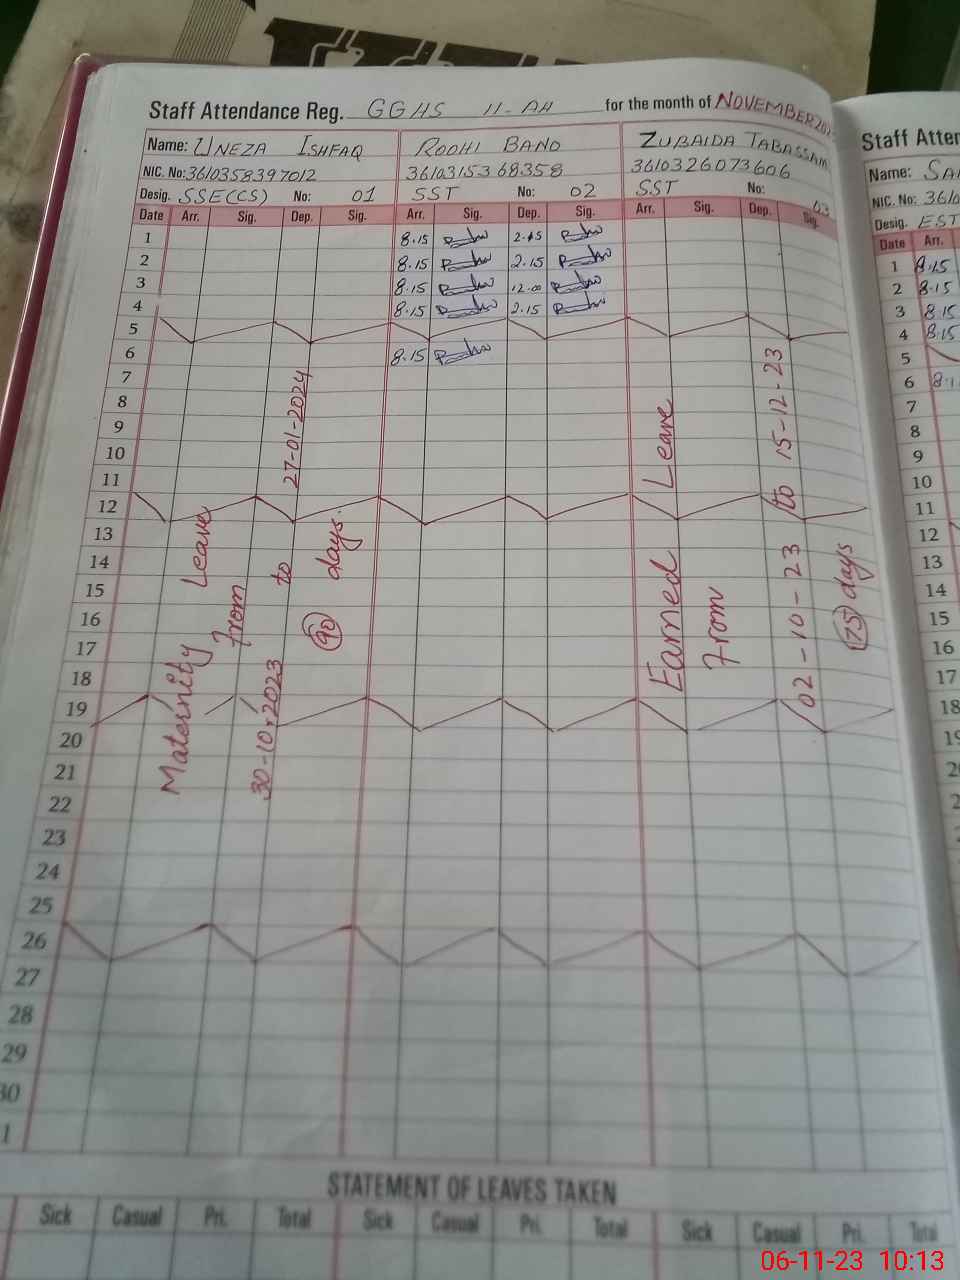 Staff Attendance Reg. GGHS 11-AH for the month of NOVEMBER 202
Name: UNEZA ISHFAQ
NIC. No: 3610358397012
Desig. SSE(CS) No: 01
ROOHI BANO
3610315368358
SST No: 02
ZUBAIDA TABASSAM
3610326073606
SST No: 03
Date Arr. Sig. Dep. Sig. Arr. Sig. Dep. Sig. Arr. Sig. Dep. Sig.
1 8.15 2.15
2 8.15 2.15
3 8.15 12.00
4 8.15 2.15
5
6 8.15
7
8
9
10
11
12
13
14
15
16
17
18
19
20
21
22
23
24
25
26
27
28
29
30
1
Maternity Leave
From
30-10-2023 to 27-01-2024
90 days.
Earned Leave
From
02-10-23 to 15-12-23
75 days
STATEMENT OF LEAVES TAKEN
Sick Casual Pri. Total Sick Casual Pri. Total Sick Casual Pri. Total
Staff Atten
Name: SA
NIC. No: 3610
Desig. EST
Date Arr.
1 8.15
2 8.15
3 8.15
4 8.15
5
6 8.1
7
8
9
10
11
12
13
14
15
16
17
18
19
2
2
06-11-23 10:13